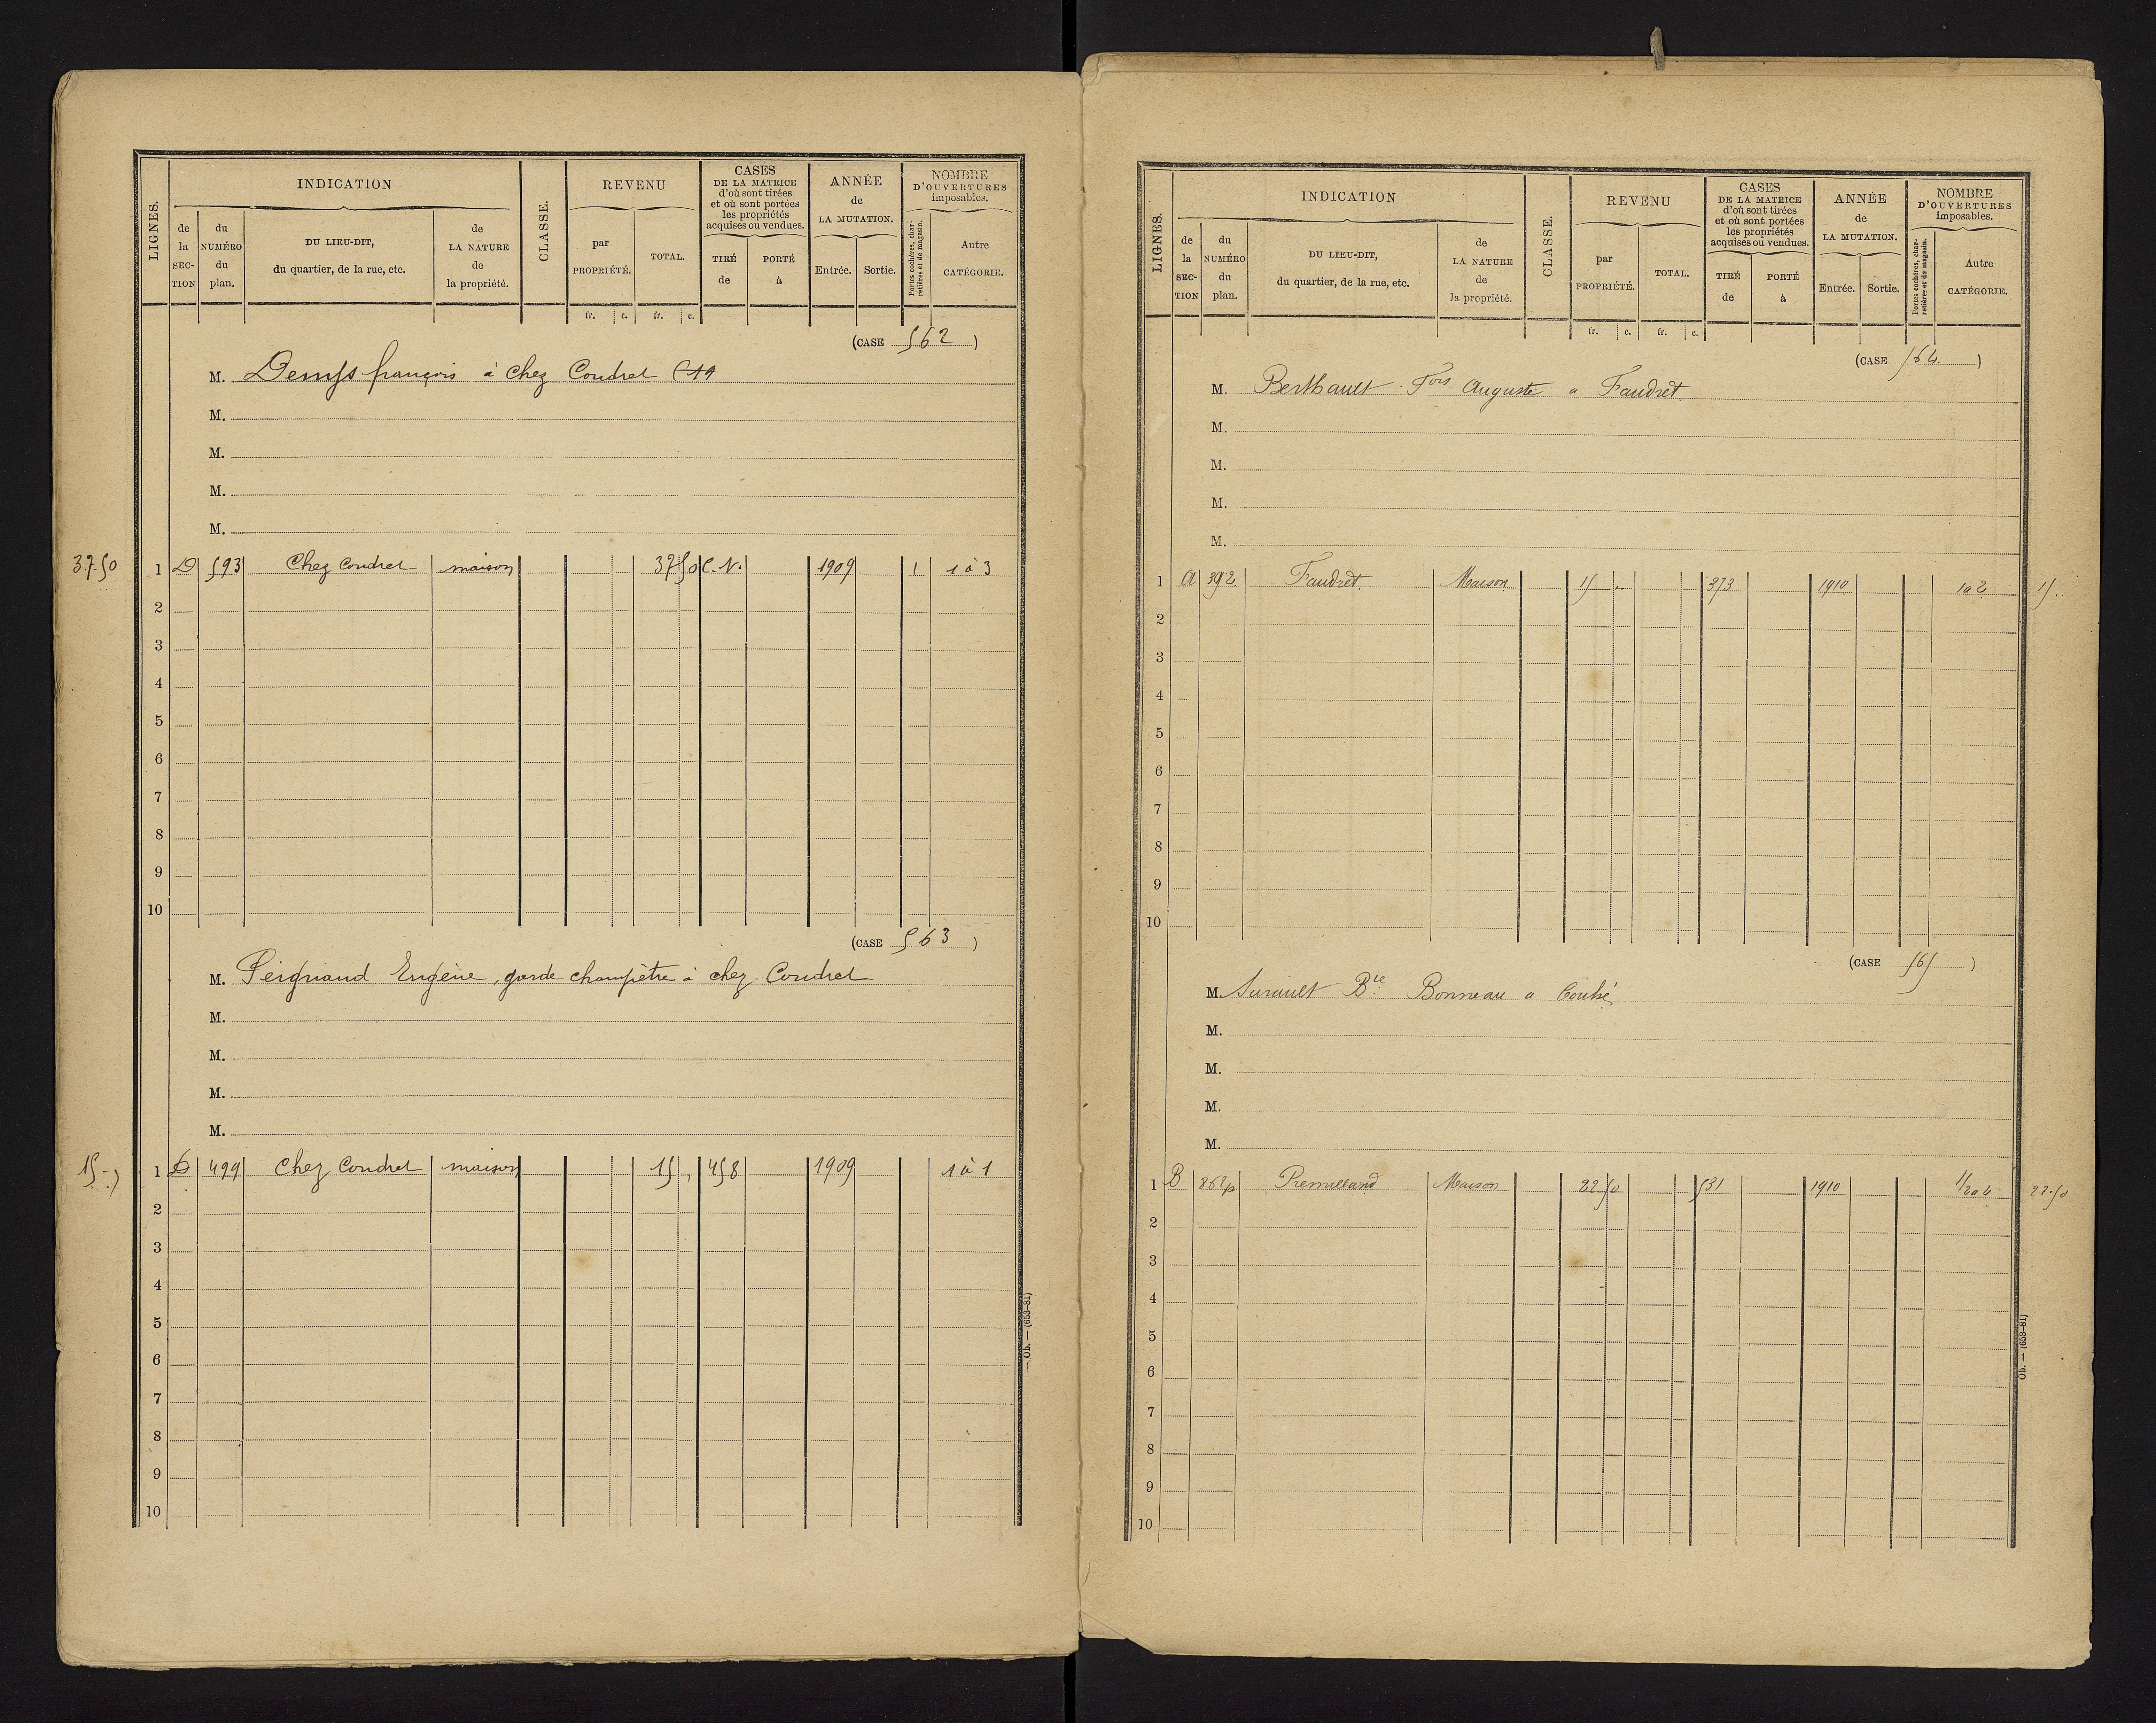 LIGNES.
INDICATION
de la SECTION
du NUMÉRO du plan.
DU LIEU-DIT,
du quartier, de la rue, etc.
de LA NATURE de la propriété.
CLASSE.
REVENU
par PROPRIÉTÉ.
TOTAL.
CASES
DE LA MATRICE
d'où sont tirées
et où sont portées
les propriétés
acquises ou vendues.
TIRÉ de
PORTÉ à
ANNÉE
de
LA MUTATION.
Entrée.
Sortie.
NOMBRE
D'OUVERTURES
imposables.
Portes cochères, charretières et de magasin.
Autre
CATÉGORIE.
fr. c. fr. c.
(CASE 562 )
M. français à Chez Coudret
M.
M.
M.
M.
37.50 1 D 593 Chez Coudret maison 37 50 C.N. 1909 1 1 à 3
2
3
4
5
6
7
8
9
10
(CASE 563 )
M. Eugène, garde champêtre à chez Coudret
M.
M.
M.
M.
15 1 D 499 Chez Coudret maison 15 458 1909 1 à 1
2
3
4
5
6
7
8
9
10
Ob. — (653-81)
LIGNES.
INDICATION
de la SECTION
du NUMÉRO du plan.
DU LIEU-DIT,
du quartier, de la rue, etc.
de LA NATURE de la propriété.
CLASSE.
REVENU
par PROPRIÉTÉ.
TOTAL.
CASES
DE LA MATRICE
d'où sont tirées
et où sont portées
les propriétés
acquises ou vendues.
TIRÉ de
PORTÉ à
ANNÉE
de
LA MUTATION.
Entrée.
Sortie.
NOMBRE
D'OUVERTURES
imposables.
Portes cochères, charretières et de magasin.
Autre
CATÉGORIE.
fr. c. fr. c.
(CASE 564 )
M. Berthault Fois Auguste a Faudret
M.
M.
M.
M.
1 A 392 Faudret Maison 15 373 1910 1 a 2 15
2
3
4
5
6
7
8
9
10
(CASE 565 )
M. Surault Bonneau a Couhé
M.
M.
M.
M.
1 B 862p Premilland Maison 22 50 531 1910 1/2 a 4 22.50
2
3
4
5
6
7
8
9
10
Ob. — (653-81)